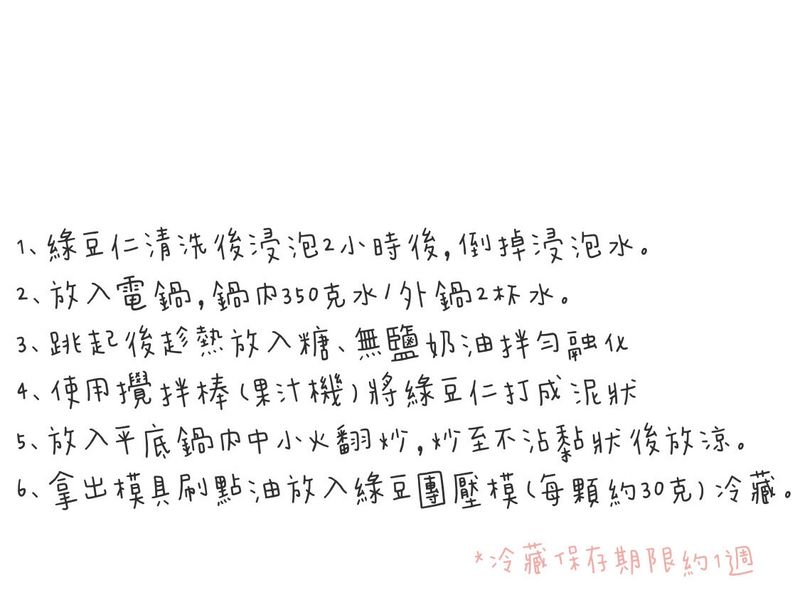 1、綠豆仁清洗後浸泡2小時後,倒掉浸泡水。
2、放入電鍋,鍋內350克水/外鍋2杯水。
3、跳起後趁熱放入糖、無鹽奶油拌勻融化
4、使用攪拌棒(果汁機)將綠豆仁打成泥狀
5、放入平底鍋內中小火翻炒,炒至不沾黏狀後放涼。
6、拿出模具刷點油放入綠豆團壓模(每顆約30克)冷藏。
*冷藏保存期限約1週